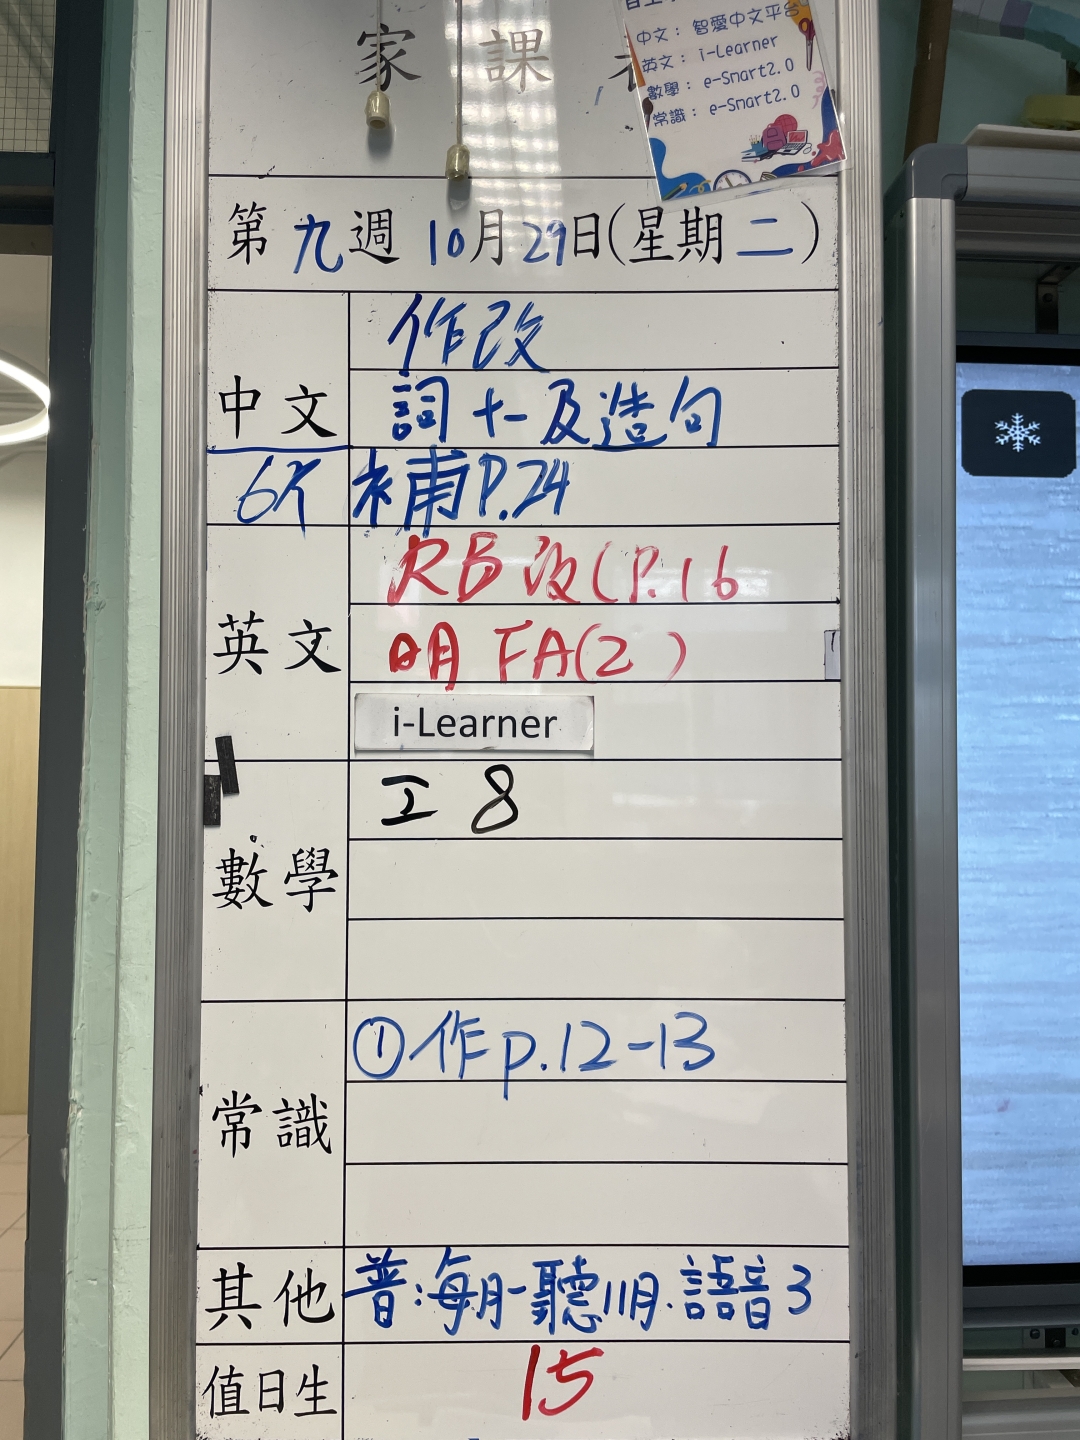 家課
中文：智愛中文平台
英文：i-Learner
數學：e-Smart2.0
常識：e-Smart2.0
第九週 10月29日(星期二)
中文
作改
詞十一及造句
補P.24
英文
RB 改(P.16
明 FA(2)
i-Learner
數學
工 8
常識
①作p.12-13
其他
普:每月一聽11月.語音3
值日生
15